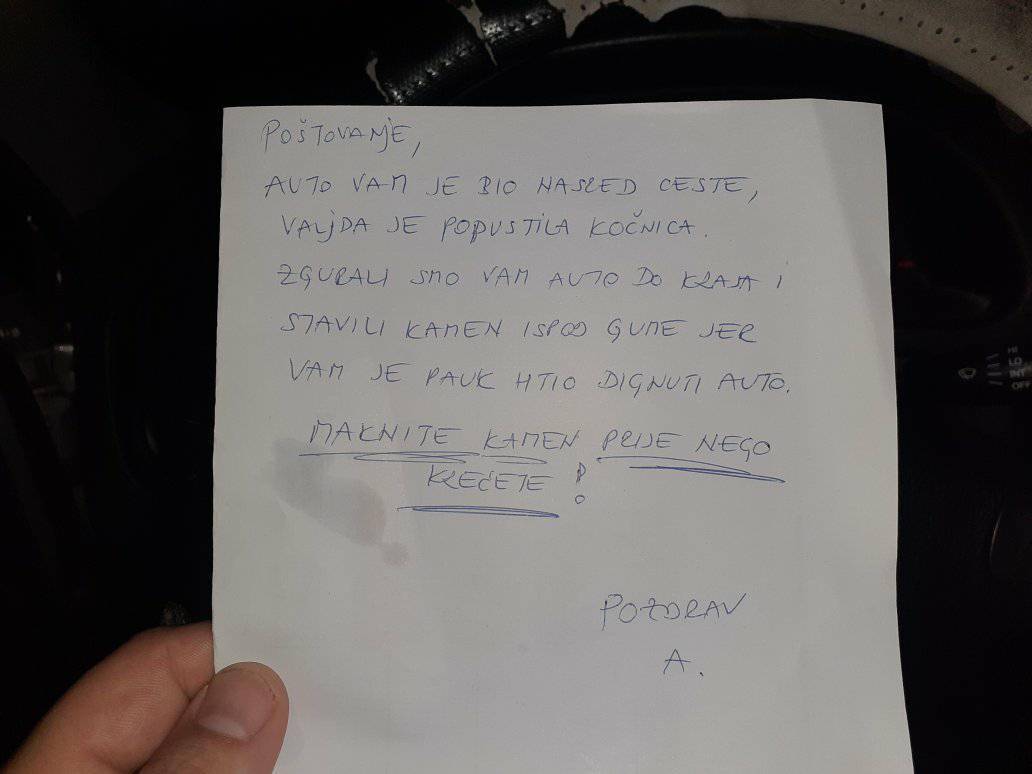 POŠTOVANJE,
AUTO VAM JE BIO NASRED CESTE,
VALJDA JE POPUSTILA KOČNICA.
ZGURALI SMO VAM AUTO DO KRAJA I
STAVILI KAMEN ISPOD GUME JER
VAM JE PAUK HTIO DIGNUTI AUTO.
MAKNITE KAMEN PRIJE NEGO
KREĆETE !
POZDRAV
A.
HI
LO
INT
OFF